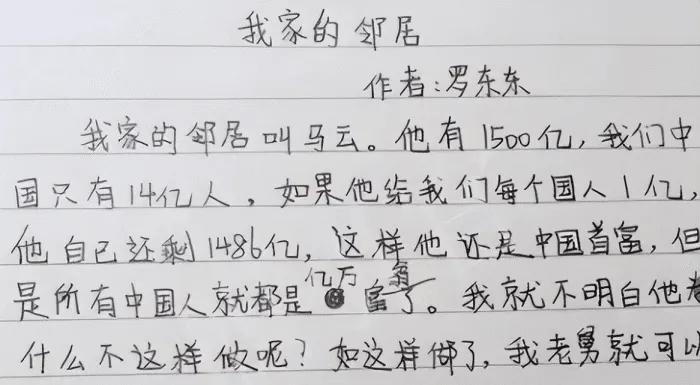 我家的邻居
作者:罗东东
我家的邻居叫马云。他有1500亿,我们中
国只有14亿人,如果他给我们每个国人1亿,
他自己还剩1486亿,这样他还是中国首富,但
是所有中国人就都是亿万富翁了。我就不明白他为
什么不这样做呢?如这样做了,我老舅就可以